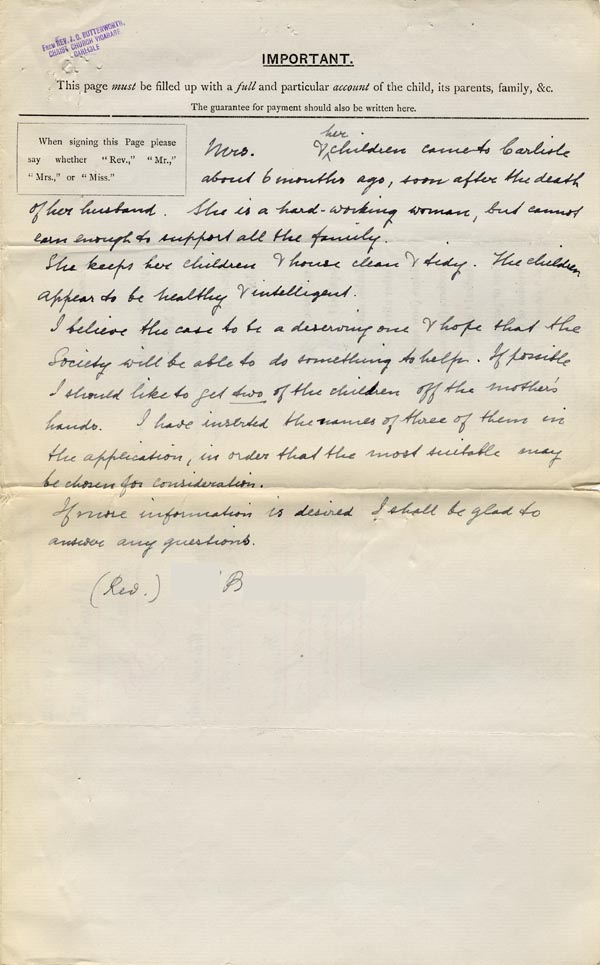 From REV. J. D. BUTTERWORTH,
CHRIST CHURCH VICARAGE,
CARLISLE
IMPORTANT.
This page must be filled up with a full and particular account of the child, its parents, family, &c.
The guarantee for payment should also be written here.
When signing this Page please
say whether "Rev.," "Mr.,"
"Mrs.," or "Miss."
her
Mrs. & children came to Carlisle
about 6 months ago, soon after the death
of her husband. She is a hard-working woman, but cannot
earn enough to support all the family.
She keeps her children & house clean & tidy. The children
appear to be healthy & intelligent.
I believe the case to be a deserving one & hope that the
Society will be able to do something to help. If possible
I should like to get two of the children off the mother's
hands. I have inserted the names of three of them in
the application, in order that the most suitable may
be chosen for consideration.
If more information is desired I shall be glad to
answer any questions.
(Rev.) B